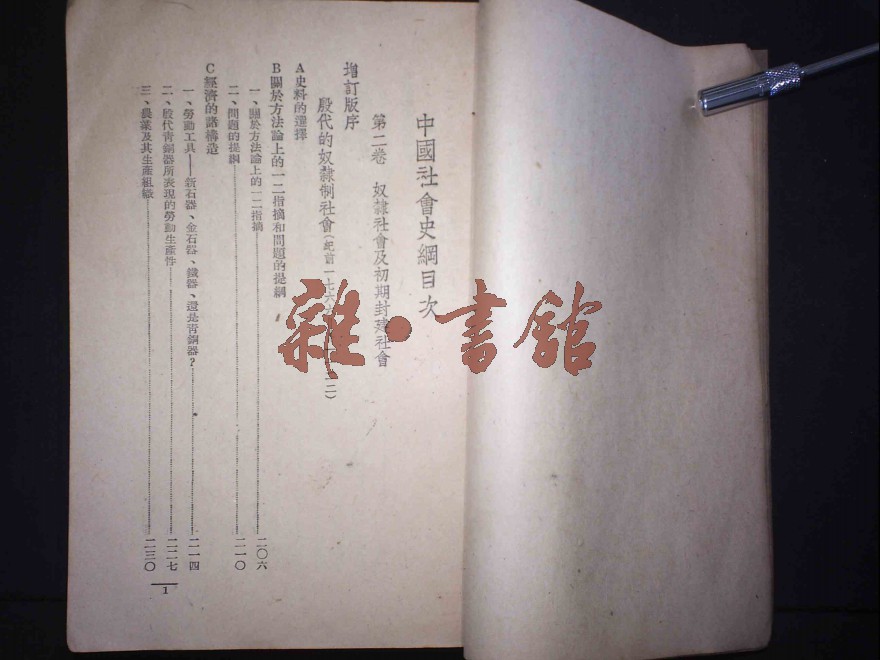 中國社會史綱目次
第二卷 奴隸社會及初期封建社會
增訂版序
殷代的奴隸制社會(紀前一七六 二二)
A史料的選擇
B關於方法論上的一二指摘和問題的提綱
一、關於方法論上的一二指摘 二〇六
二、問題的提綱 二一〇
C經濟的諸構造
一、勞動工具——新石器、金石器、鐵器、還是青銅器? 二一四
二、殷代青銅器所表現的勞動生產性 二二七
三、農業及其生產組織 二三〇
1
雜·書館